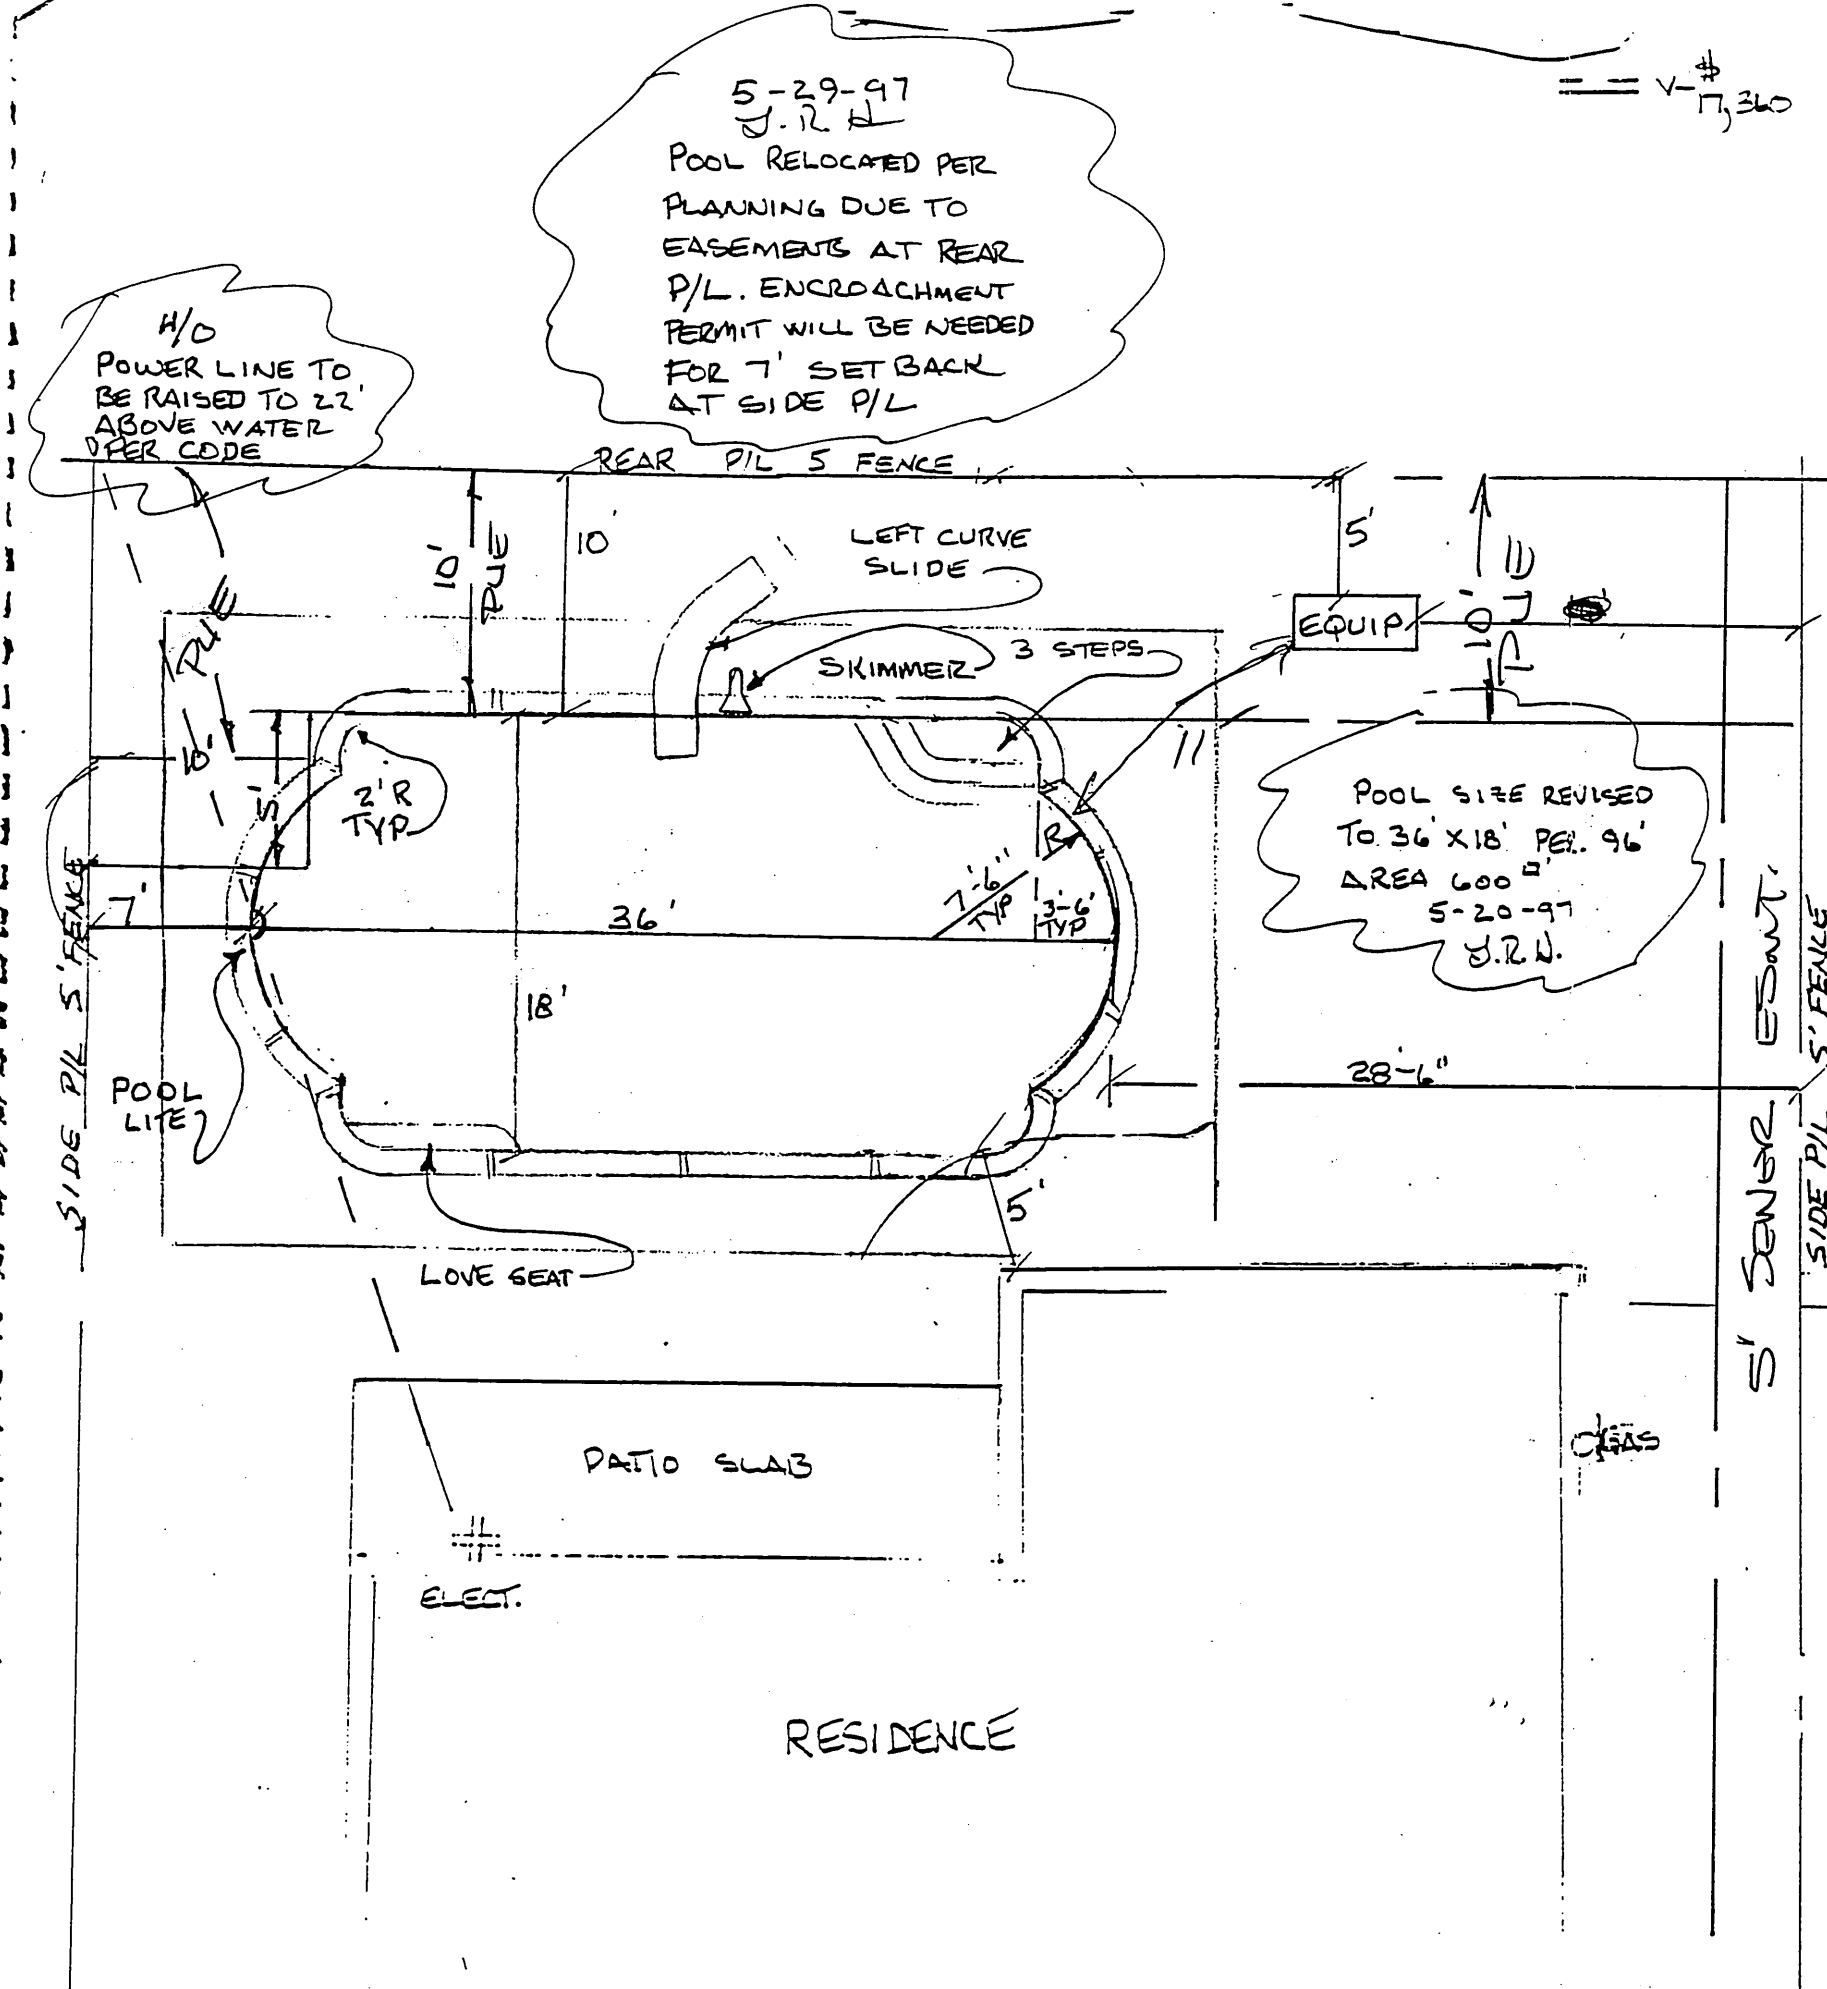 V-$
17,360
5-29-97
J.R.H
POOL RELOCATED PER
PLANNING DUE TO
EASEMENTS AT REAR
P/L. ENCROACHMENT
PERMIT WILL BE NEEDED
FOR 7' SETBACK
AT SIDE P/L
H/O
POWER LINE TO
BE RAISED TO 22'
ABOVE WATER
PER CODE
REAR P/L 5 FENCE
10'
PUE
10'
LEFT CURVE
SLIDE
5'
10'
PUE
EQUIP
PUE
10'
SKIMMER
3 STEPS
11
5'
2'R
TYP
POOL SIZE REVISED
TO 36' X 18' PER. 96'
AREA 600 □'
5-20-97
J.R.H.
R
7'-6"
TYP
3'-6"
TYP
7'
36'
18'
SIDE P/L 5' FENCE
POOL
LITE
28'-6"
5' SEWER ESMT.
SIDE P/L 5' FENCE
5'
LOVE SEAT
PATIO SLAB
GAS
ELECT.
RESIDENCE